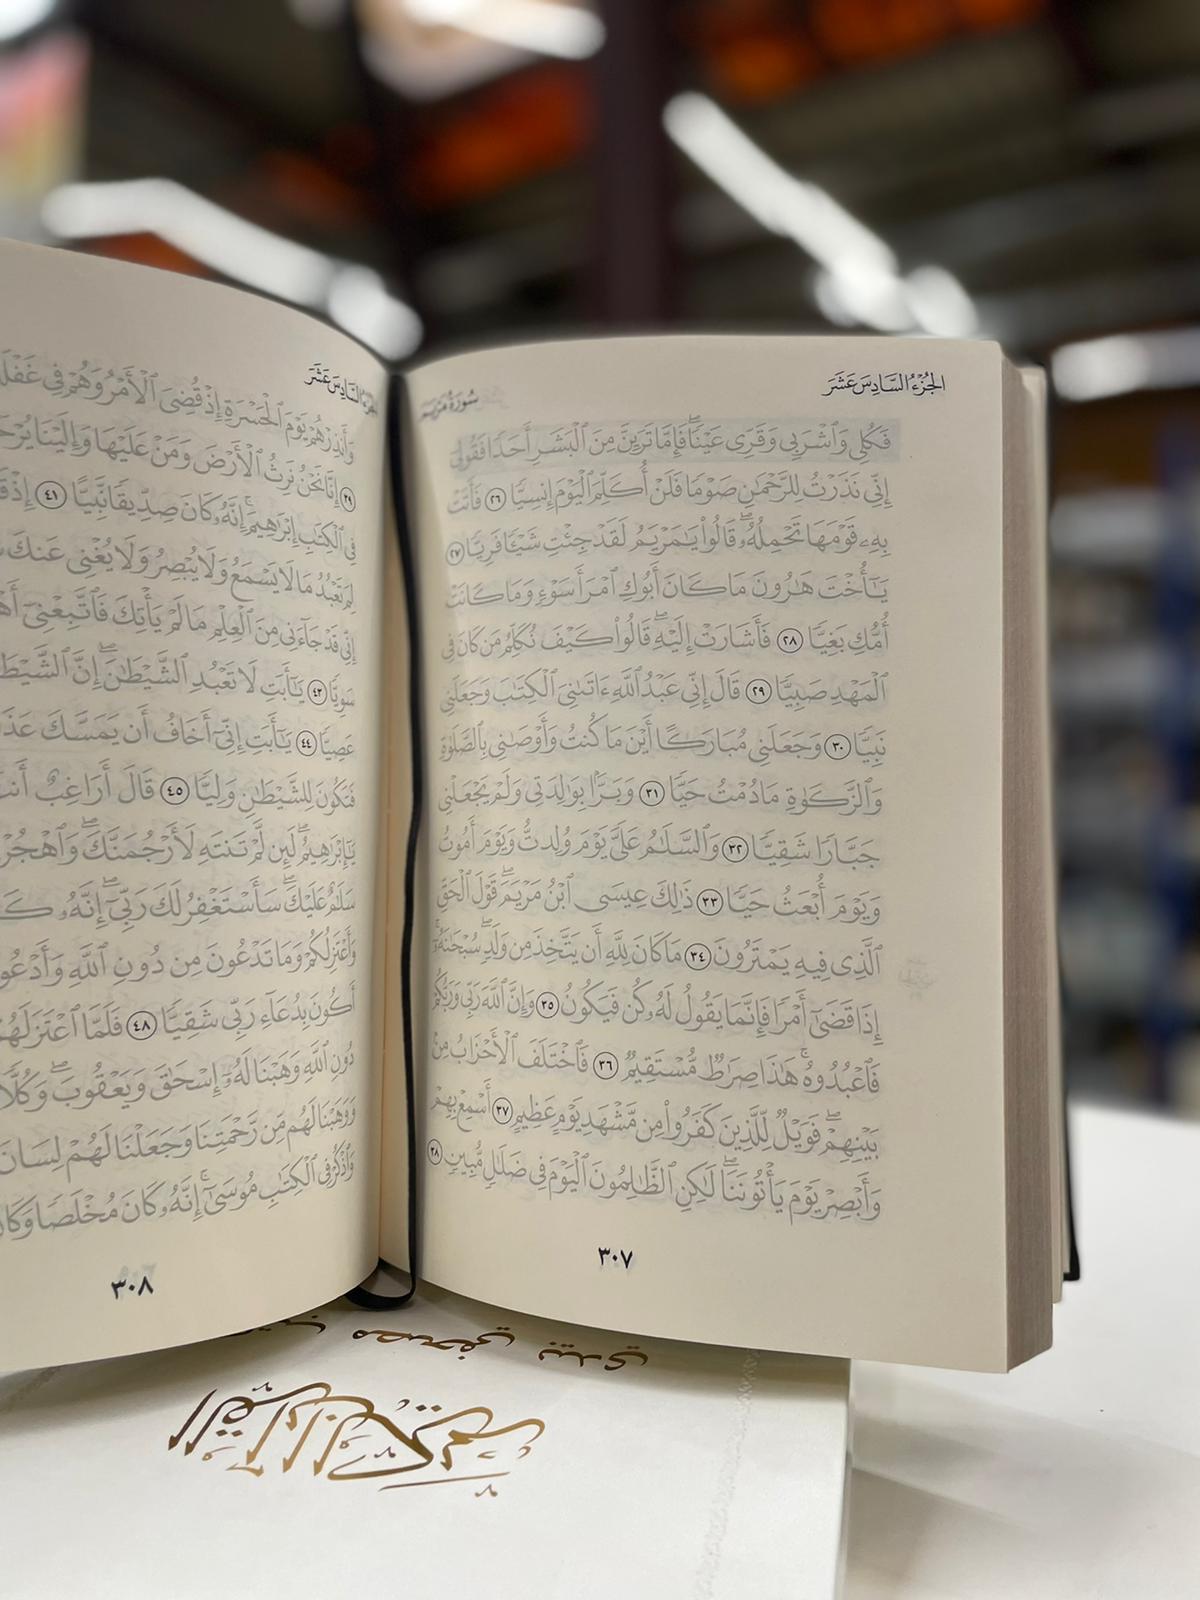 الجُزْءُ السَّادِسَ عَشَرَ
سُورَةُ مَرْيَمَ
فَكُلِي وَٱشْرَبِي وَقَرِّي عَيْنٗاۖ فَإِمَّا تَرَيِنَّ مِنَ ٱلْبَشَرِ أَحَدٗا فَقُولِيٓ
إِنِّي نَذَرْتُ لِلرَّحْمَٰنِ صَوْمٗا فَلَنْ أُكَلِّمَ ٱلْيَوْمَ إِنسِيّٗا ٢٦ فَأَتَتْ
بِهِۦ قَوْمَهَا تَحْمِلُهُۥۖ قَالُوا۟ يَٰمَرْيَمُ لَقَدْ جِئْتِ شَيْـٔٗا فَرِيّٗا ٢٧
يَٰٓأُخْتَ هَٰرُونَ مَا كَانَ أَبُوكِ ٱمْرَأَ سَوْءٖ وَمَا كَانَتْ
أُمُّكِ بَغِيّٗا ٢٨ فَأَشَارَتْ إِلَيْهِۖ قَالُوا۟ كَيْفَ نُكَلِّمُ مَن كَانَ فِي
ٱلْمَهْدِ صَبِيّٗا ٢٩ قَالَ إِنِّي عَبْدُ ٱللَّهِ ءَاتَىٰنِيَ ٱلْكِتَٰبَ وَجَعَلَنِي
نَبِيّٗا ٣٠ وَجَعَلَنِي مُبَارَكًا أَيْنَ مَا كُنتُ وَأَوْصَٰنِي بِٱلصَّلَوٰةِ
وَٱلزَّكَوٰةِ مَا دُمْتُ حَيّٗا ٣١ وَبَرَّۢا بِوَٰلِدَتِي وَلَمْ يَجْعَلْنِي
جَبَّارٗا شَقِيّٗا ٣٢ وَٱلسَّلَٰمُ عَلَيَّ يَوْمَ وُلِدتُّ وَيَوْمَ أَمُوتُ
وَيَوْمَ أُبْعَثُ حَيّٗا ٣٣ ذَٰلِكَ عِيسَى ٱبْنُ مَرْيَمَۖ قَوْلَ ٱلْحَقِّ
ٱلَّذِي فِيهِ يَمْتَرُونَ ٣٤ مَا كَانَ لِلَّهِ أَن يَتَّخِذَ مِن وَلَدٖۖ سُبْحَٰنَهُۥٓۚ
إِذَا قَضَىٰٓ أَمْرٗا فَإِنَّمَا يَقُولُ لَهُۥ كُن فَيَكُونُ ٣٥ وَإِنَّ ٱللَّهَ رَبِّي وَرَبُّكُمْ
فَٱعْبُدُوهُۚ هَٰذَا صِرَٰطٞ مُّسْتَقِيمٞ ٣٦ فَٱخْتَلَفَ ٱلْأَحْزَابُ مِنۢ
بَيْنِهِمْۖ فَوَيْلٞ لِّلَّذِينَ كَفَرُوا۟ مِن مَّشْهَدِ يَوْمٍ عَظِيمٍ ٣٧ أَسْمِعْ بِهِمْ
وَأَبْصِرْ يَوْمَ يَأْتُونَنَاۖ لَٰكِنِ ٱلظَّٰلِمُونَ ٱلْيَوْمَ فِي ضَلَٰلٖ مُّبِينٖ ٣٨
٣٠٧
الجُزْءُ السَّادِسَ عَشَرَ
وَأَنذِرْهُمْ يَوْمَ ٱلْحَسْرَةِ إِذْ قُضِيَ ٱلْأَمْرُ وَهُمْ فِي
٣٩ إِنَّا نَحْنُ نَرِثُ ٱلْأَرْضَ وَمَنْ عَلَيْهَا وَإِلَيْنَا
فِي ٱلْكِتَٰبِ إِبْرَٰهِيمَۚ إِنَّهُۥ كَانَ صِدِّيقٗا نَّبِيّٗا ٤١ إِذْ
لِمَ تَعْبُدُ مَا لَا يَسْمَعُ وَلَا يُبْصِرُ وَلَا يُغْنِي عَنكَ
إِنِّي قَدْ جَآءَنِي مِنَ ٱلْعِلْمِ مَا لَمْ يَأْتِكَ فَٱتَّبِعْنِيٓ
سَوِيّٗا ٤٣ يَٰٓأَبَتِ لَا تَعْبُدِ ٱلشَّيْطَٰنَۖ إِنَّ
عَصِيّٗا ٤٤ يَٰٓأَبَتِ إِنِّيٓ أَخَافُ أَن يَمَسَّكَ
فَتَكُونَ لِلشَّيْطَٰنِ وَلِيّٗا ٤٥ قَالَ أَرَاغِبٌ
يَٰٓإِبْرَٰهِيمُۖ لَئِن لَّمْ تَنتَهِ لَأَرْجُمَنَّكَۖ
سَلَٰمٌ عَلَيْكَۖ سَأَسْتَغْفِرُ لَكَ رَبِّيٓۖ إِنَّهُۥ
وَأَعْتَزِلُكُمْ وَمَا تَدْعُونَ مِن دُونِ ٱللَّهِ
أَكُونَ بِدُعَآءِ رَبِّي شَقِيّٗا ٤٨ فَلَمَّا
دُونِ ٱللَّهِ وَهَبْنَا لَهُۥٓ إِسْحَٰقَ وَيَعْقُوبَۖ
وَوَهَبْنَا لَهُم مِّن رَّحْمَتِنَا وَجَعَلْنَا لَهُمْ لِسَانَ
وَٱذْكُرْ فِي ٱلْكِتَٰبِ مُوسَىٰٓۚ إِنَّهُۥ كَانَ مُخْلَصٗا
٣٠٨
القرآن الكريم